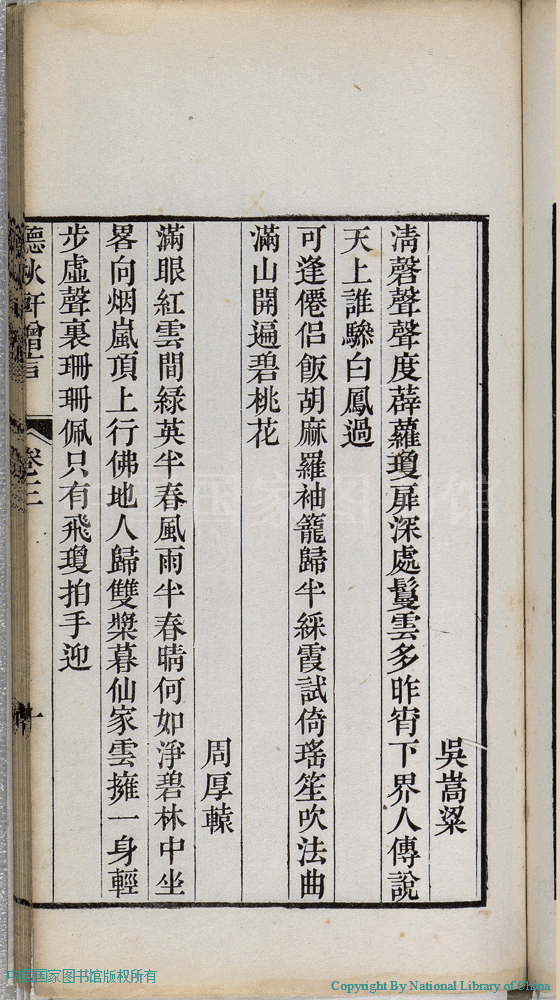 吳嵩梁
清磬聲聲度薜蘿瓊扉深處鬘雲多昨宵下界人傳說
天上誰驂白鳳過
可逢僊侶飯胡麻羅袖籠歸半綵霞試倚瑤笙吹法曲
滿山開遍碧桃花
周厚轅
滿眼紅雲間綠英半春風雨半春晴何如淨碧林中坐
畧向烟嵐頂上行佛地人歸雙槳暮仙家雲擁一身輕
步虛聲裏珊珊佩只有飛瓊拍手迎
聽秋軒贈言
卷三
中国国家图书馆
中国国家图书馆版权所有
Copyright By National Library of China